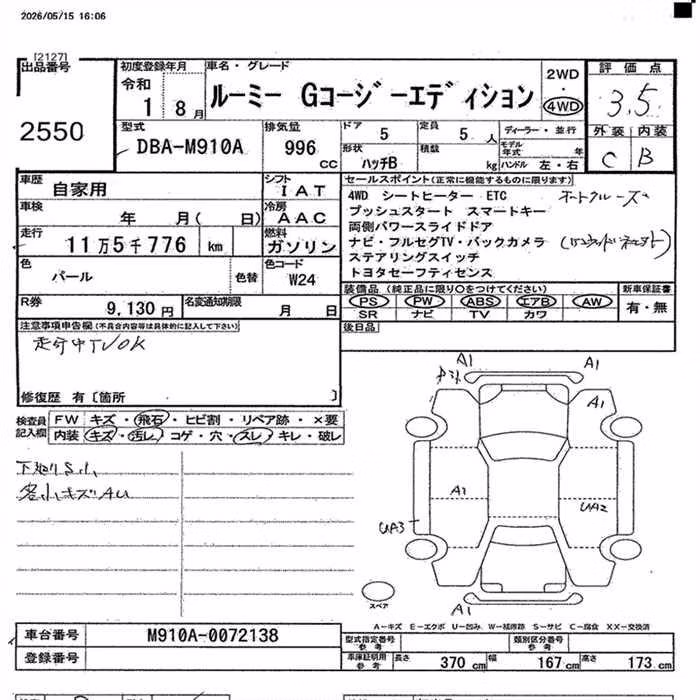 2026/05/15 16:06
[2127]
出品番号
2550
初度登録年月
令和
1 8月
車名・グレード
ルーミー Gコージーエディション
2WD
・
4WD
評価点
3.5
外装 内装
C B
型式
DBA-M910A
排気量
996 CC
ドア 5
定員 5 人
形状 ハッチB
積載 kg
ディーラー・並行
モデル年式 年
ハンドル 左・右
車歴 自家用
シフト IAT
車検 年 月( 日)
冷房 AAC
走行 11万5千776 km
燃料 ガソリン
色 パール
色替
色コード W24
R券 9,130円
名変通知期限 月 日
セールスポイント(正常に機能するものに限ります)
4WD シートヒーター ETC
プッシュスタート スマートキー
両側パワースライドドア
ナビ・フルセグTV・バックカメラ
ステアリングスイッチ
トヨタセーフティセンス
装備品(純正品に限り○をつけてください)
PS PW ABS エアB AW
SR ナビ TV カワ
新車保証書
有・無
後日品
注意事項申告欄(不具合内容等は具体的に記入して下さい)
走行中TVOK
修復歴 有〔箇所 〕
検査員記入欄
FW キズ・飛石・ヒビ割・リペア跡・×要
内装 キズ・汚レ・コゲ・穴・スレ・キレ・破レ
下廻りS1
各小キズAU
A1 A1
A1
A1
UA2
UA3
A1
スペア
A-キズ E-エクボ U-凹み W-補修跡 S-サビ C-腐食 XX-交換済
車台番号 M910A-0072138
登録番号
型式指定番号 参考
類別区分番号 参考
車庫証明用 参考 長さ 370cm 幅 167cm 高さ 173cm